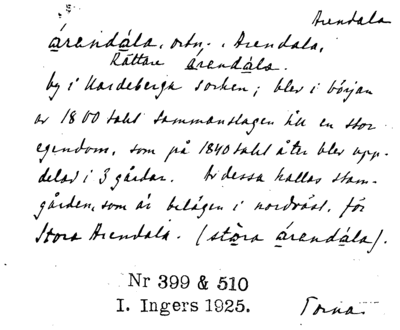 Arendala
árendála, ortn. Arendala,
Rättare árendála.
by i Hardeberga socken; blev i början
av 1800 talet sammanslagen till en stor
egendom, som på 1840 talet åter blev upp-
delad i 3 gårdar. Av dessa kallas stam-
gården, som är belägen i nordväst, för
Stora Arendala. (stòra árendála).
Nr 399 & 510
I. Ingers 1925.
Torna